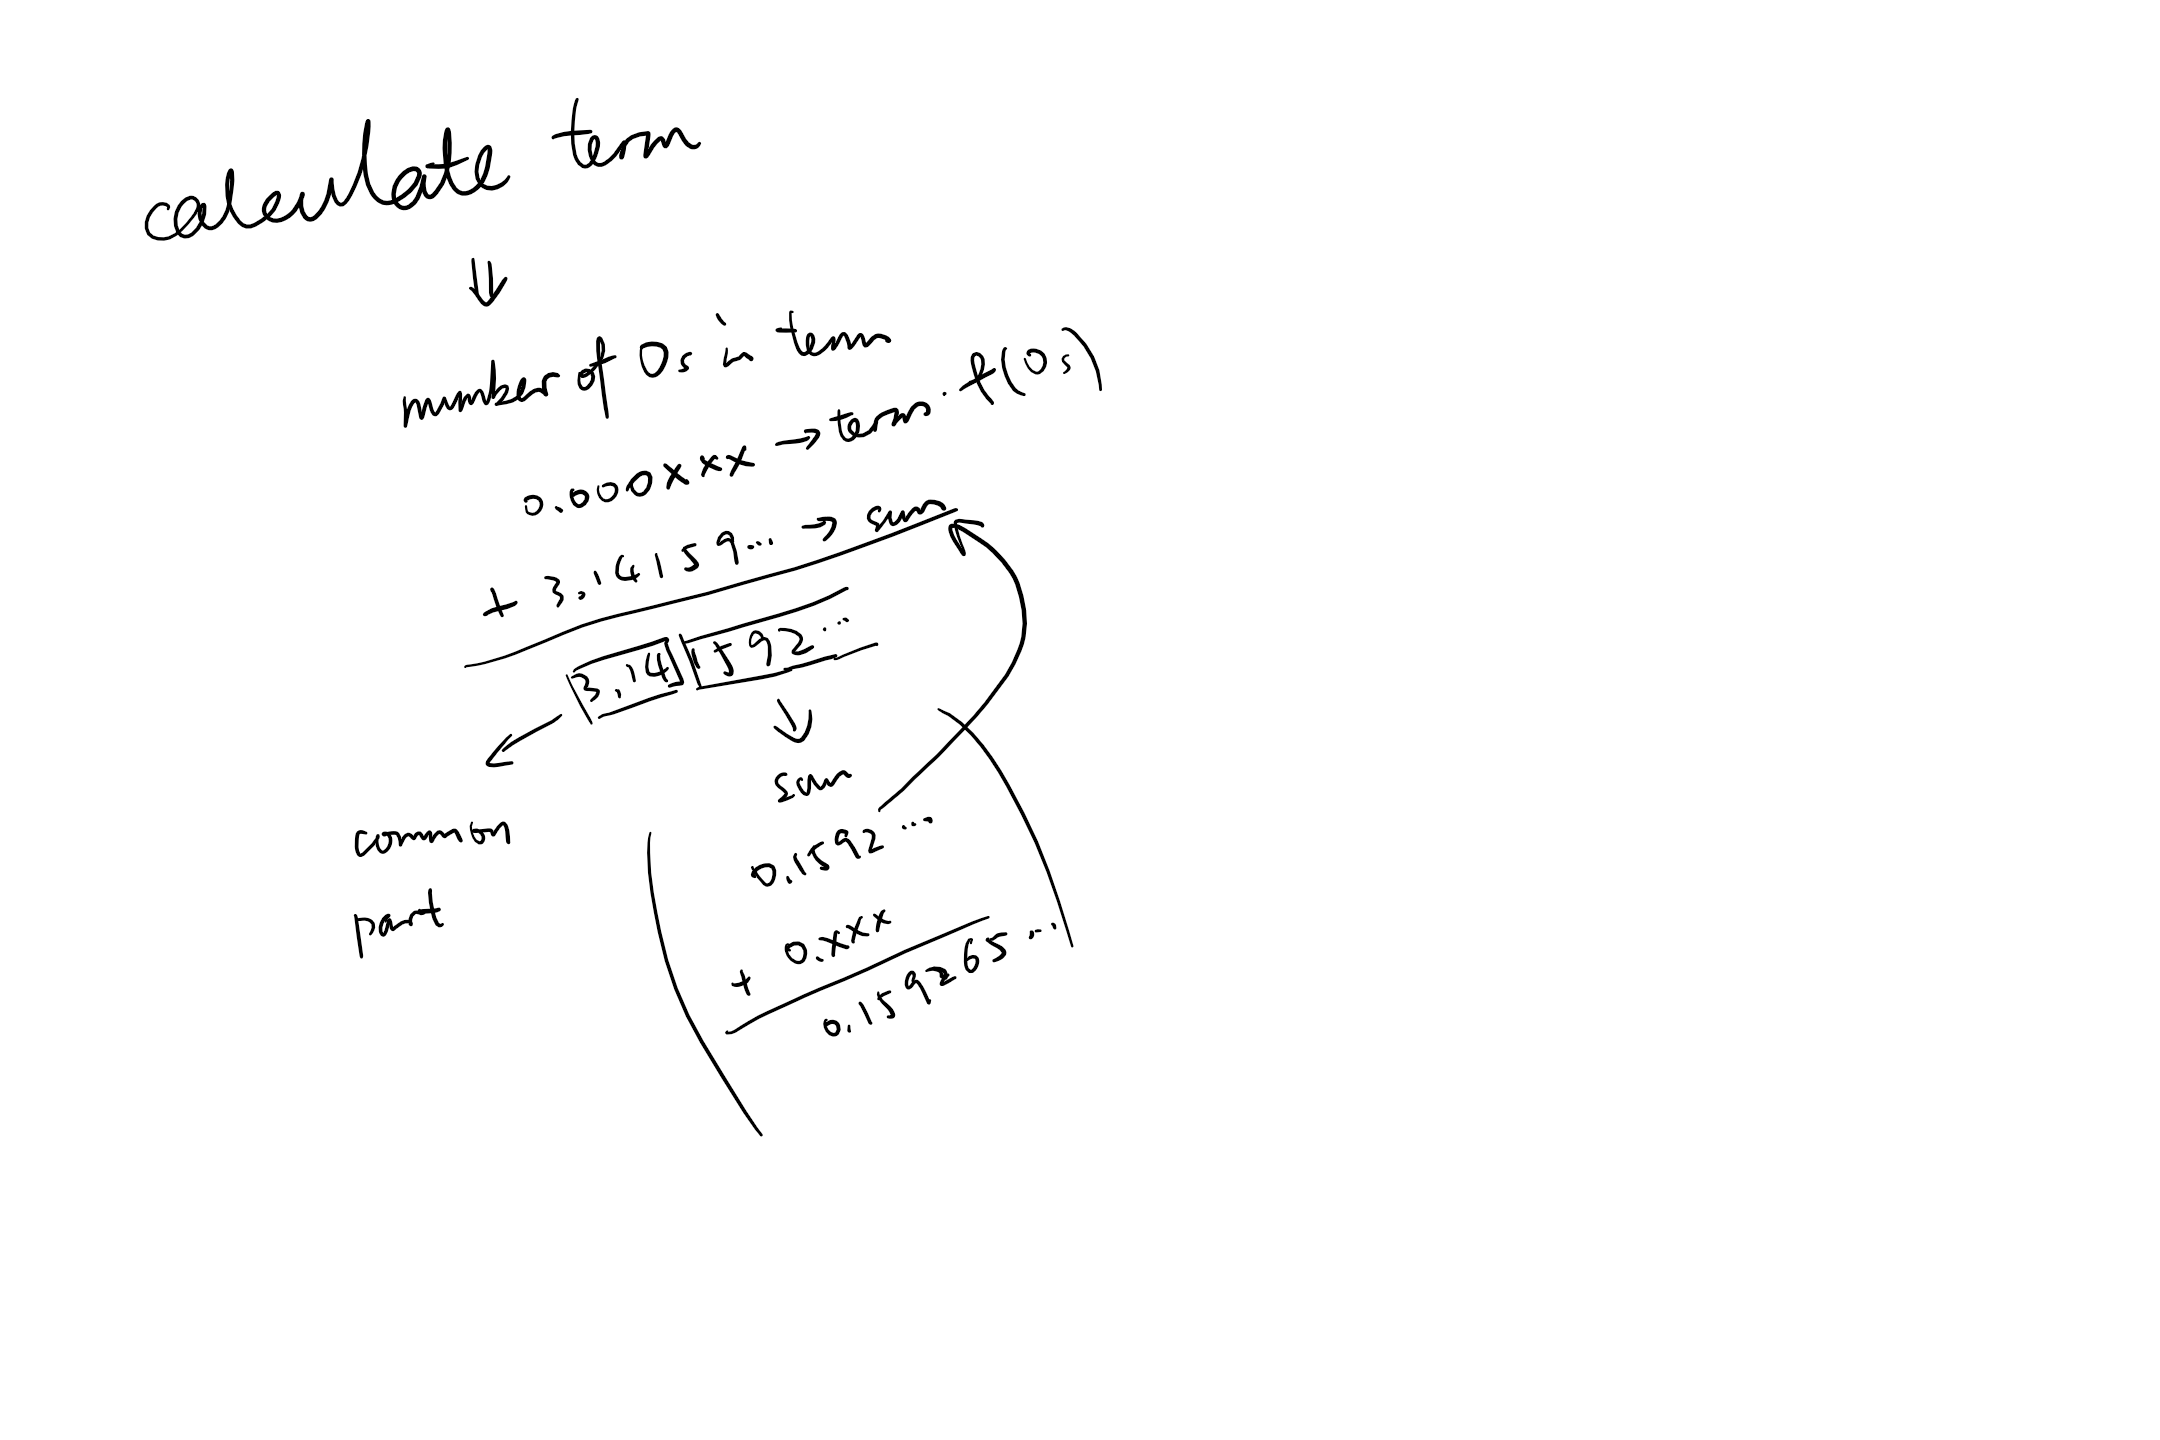 calculate term
⇓
number of 0s in term
0.000xxx → term · f(0s)
+ 3.14159... → sum
3.14 1592...
sum
common
part
0.1592...
+ 0.xxx
0.159265...